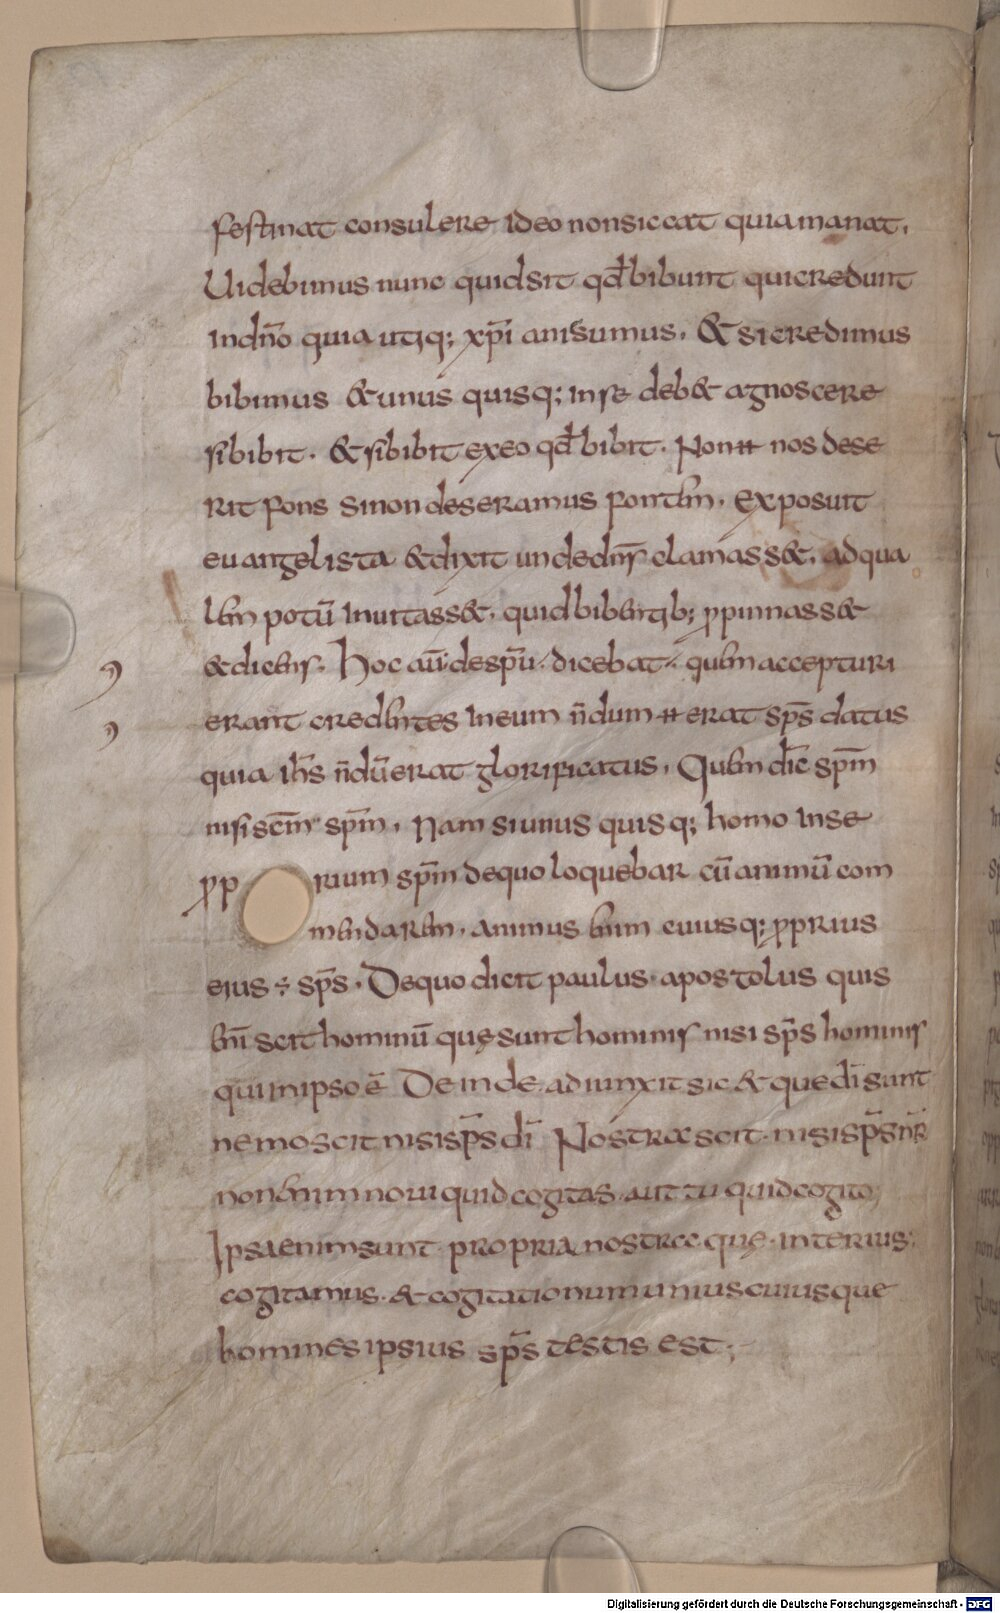 festinat consulere ideo nonsiccat quiamanat.
Uidebimus nunc quidsit qđ bibunt quicredunt
indn̄o quia utiq; xp̄i anisumus. & sicredimus
bibimus & unus quisq; inse deb& agnoscere
sibibit. & sibibit exeo qđ bibit. Non ħ nos dese
rit fons sinon deseramus fontem. Exposuit
euangelista & dixit undedn̄s clamass&. adqua
lem potū inuitass&. quid bibentib; ꝓpinnass&
& dicens. Hoc aū despū. dicebat. quem accepturi
erant credentes ineum n̄dum ħ erat sp̄s datus
quia ih̄s n̄dū erat glorificatus. Quem dic̄ sp̄m
nisi sc̄m sp̄m. Nam siunus quisq; homo inse
ꝓp rium sp̄m dequo loquebar cū animū com
mendarem. animus enim cuiusq; ꝓprius
eius ÷ sp̄s. Dequo dicit paulus. apostolus quis
enī scit hominū quę sunt hominis nisi sp̄s hominis
qui inipso ē Deinde adiunxit sic & que dī sunt
nemo scit nisi sp̄s dī Nostra scit. nisi sp̄s nr̄
non enim noui quid cogitas. aut tu quid cogito;
Ipsa enim sunt propria nostra. quę. interius;
cogitamus. & cogitationum uniuscuiusque
homines ipsius sp̄s testis est;
Digitalisierung gefördert durch die Deutsche Forschungsgemeinschaft - DFG